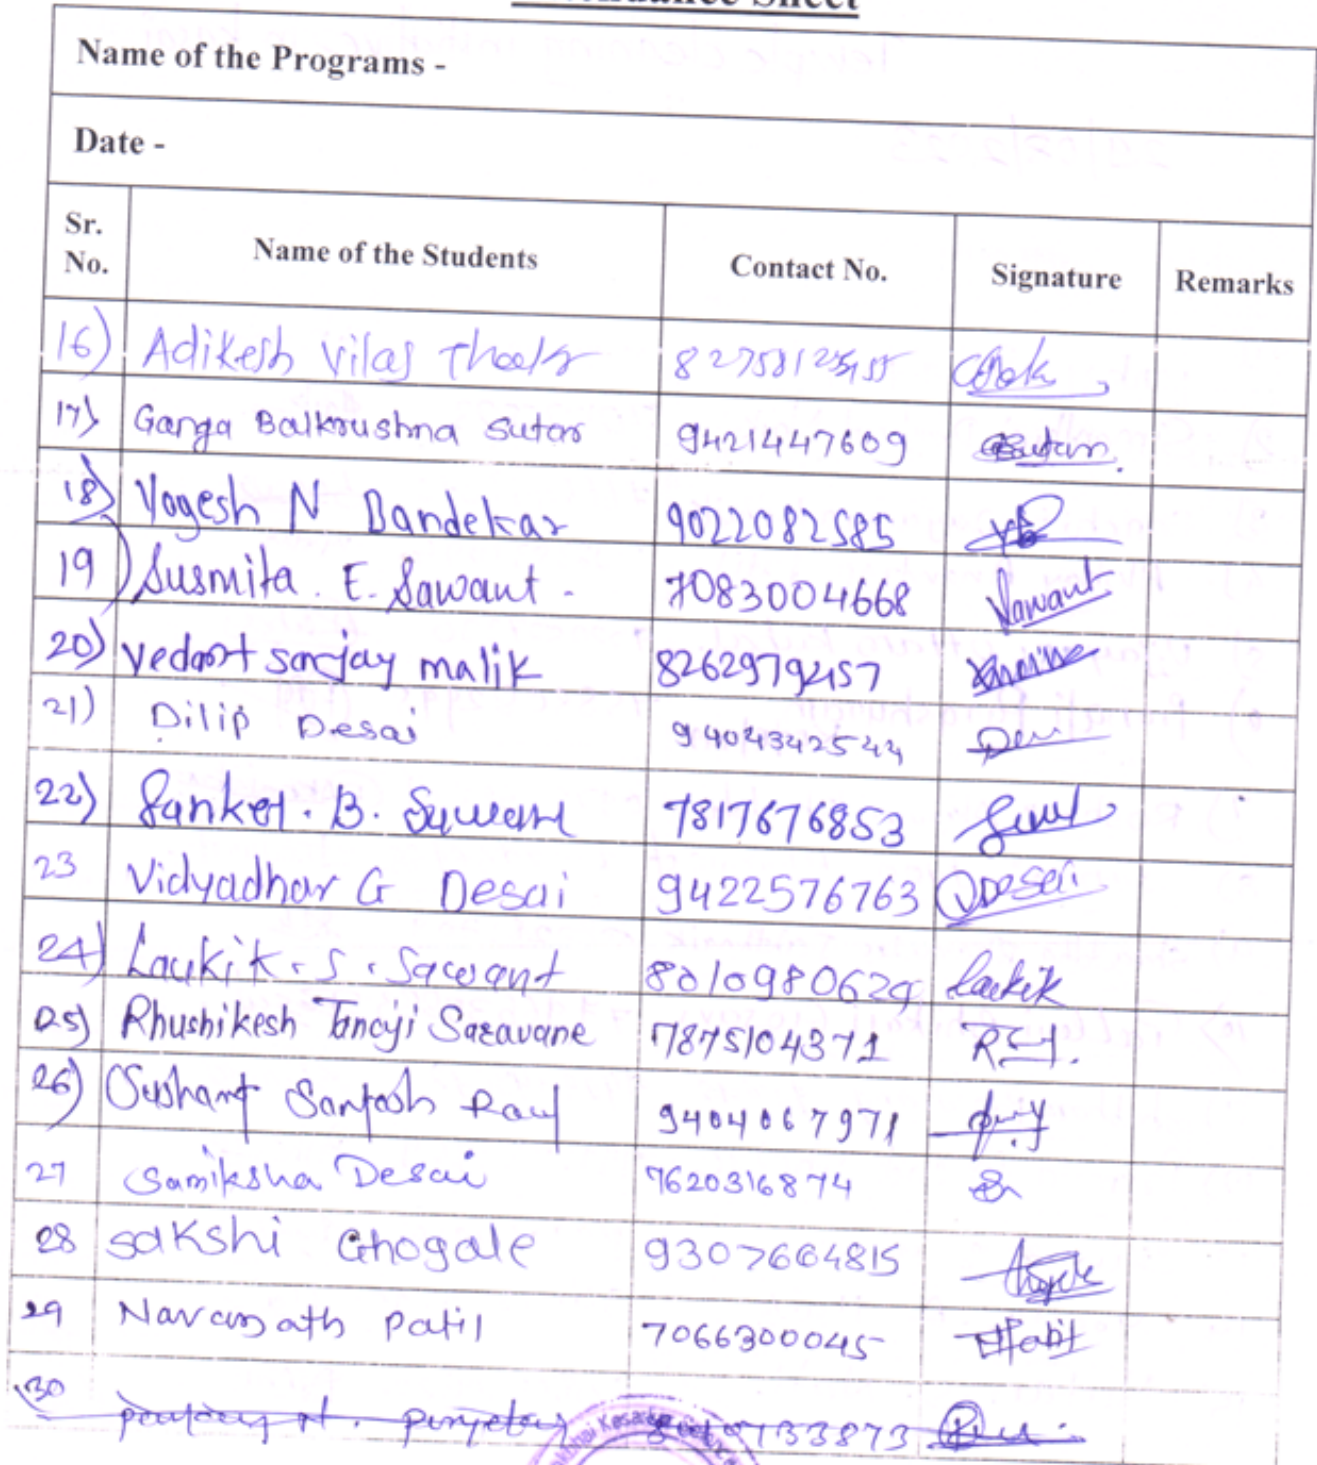 Attendance Sheet
Name of the Programs -
Date -
Sr. No. Name of the Students Contact No. Signature Remarks
16) Adikesh Vilas
17) Ganga Balkrushna Sutar 9421447609 Sutar.
18) Yogesh N Dandekar 9022082585
19) Susmita. E. Sawant. 7083004668 Sawant
20) vedant sanjay malik 8262979457
21) Dilip Desai 9404342544
22) Sanket. B. 7817676853
23 Vidyadhar G Desai 9422576763 Desai
24) Laukik. S. Sawant 8010980629 Laukik
25) Rhushikesh Tanaji Saravane 7875104371
26) Sushant Santosh 9404067971
27 Samiksha Desai 7620316874
28 Sakshi Ghogale 9307664815
29 Navanath Patil 7066300045
30